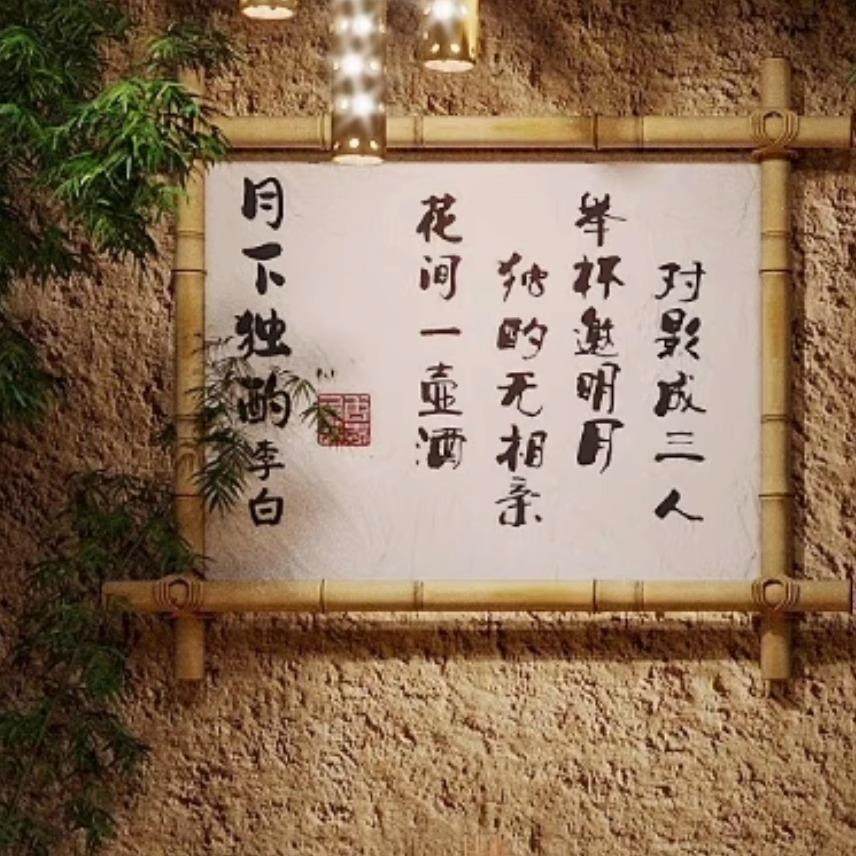 月下独酌 李白
花间一壶酒
独酌无相亲
举杯邀明月
对影成三人